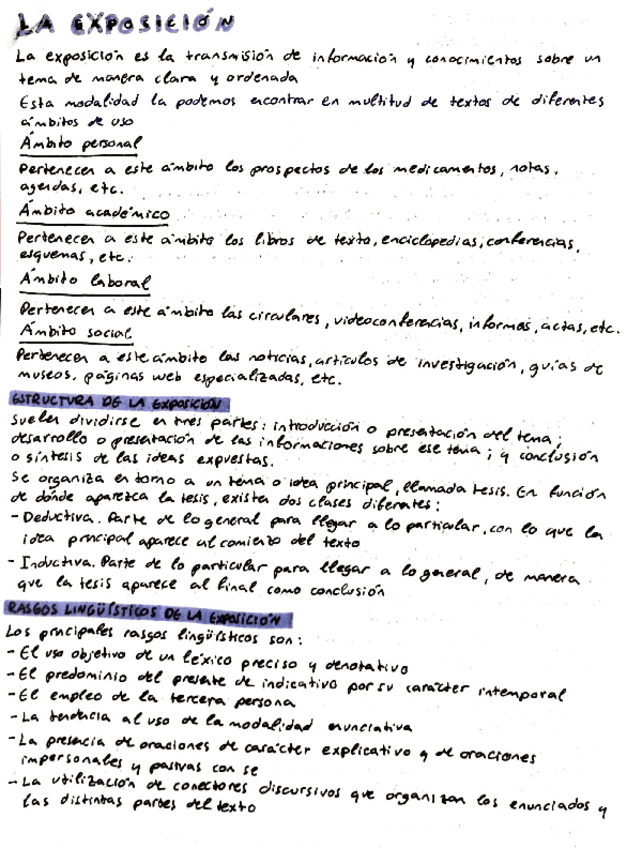 LA EXPOSICIÓN
La exposición es la transmisión de información y conocimientos sobre un
tema de manera clara y ordenada
Esta modalidad la podemos encontrar en multitud de textos de diferentes
ámbitos de uso
Ámbito personal
Pertenecen a este ámbito los prospectos de los medicamentos, notas,
agendas, etc.
Ámbito académico
Pertenecen a este ámbito los libros de texto, enciclopedias, conferencias,
esquemas, etc.
Ámbito laboral
Pertenecen a este ámbito las circulares, videoconferencias, informes, actas, etc.
Ámbito social
Pertenecen a este ámbito las noticias, artículos de investigación, guías de
museos, páginas web especializadas, etc.
ESTRUCTURA DE LA EXPOSICIÓN
Suelen dividirse en tres partes: introducción o presentación del tema;
desarrollo o presentación de las informaciones sobre ese tema; y conclusión
o síntesis de las ideas expuestas.
Se organiza en torno a un tema o idea principal, llamada tesis. En función
de dónde aparezca la tesis, existen dos clases diferentes:
- Deductiva. Parte de lo general para llegar a lo particular, con lo que la
idea principal aparece al comienzo del texto
- Inductiva. Parte de lo particular para llegar a lo general, de manera
que la tesis aparece al final como conclusión
RASGOS LINGÜÍSTICOS DE LA EXPOSICIÓN
Los principales rasgos lingüísticos son:
- El uso objetivo de un léxico preciso y denotativo
- El predominio del presente de indicativo por su carácter intemporal
- El empleo de la tercera persona
- La tendencia al uso de la modalidad enunciativa
- La presencia de oraciones de carácter explicativo y de oraciones
impersonales y pasivas con se
- La utilización de conectores discursivos que organizan los enunciados y
las distintas partes del texto